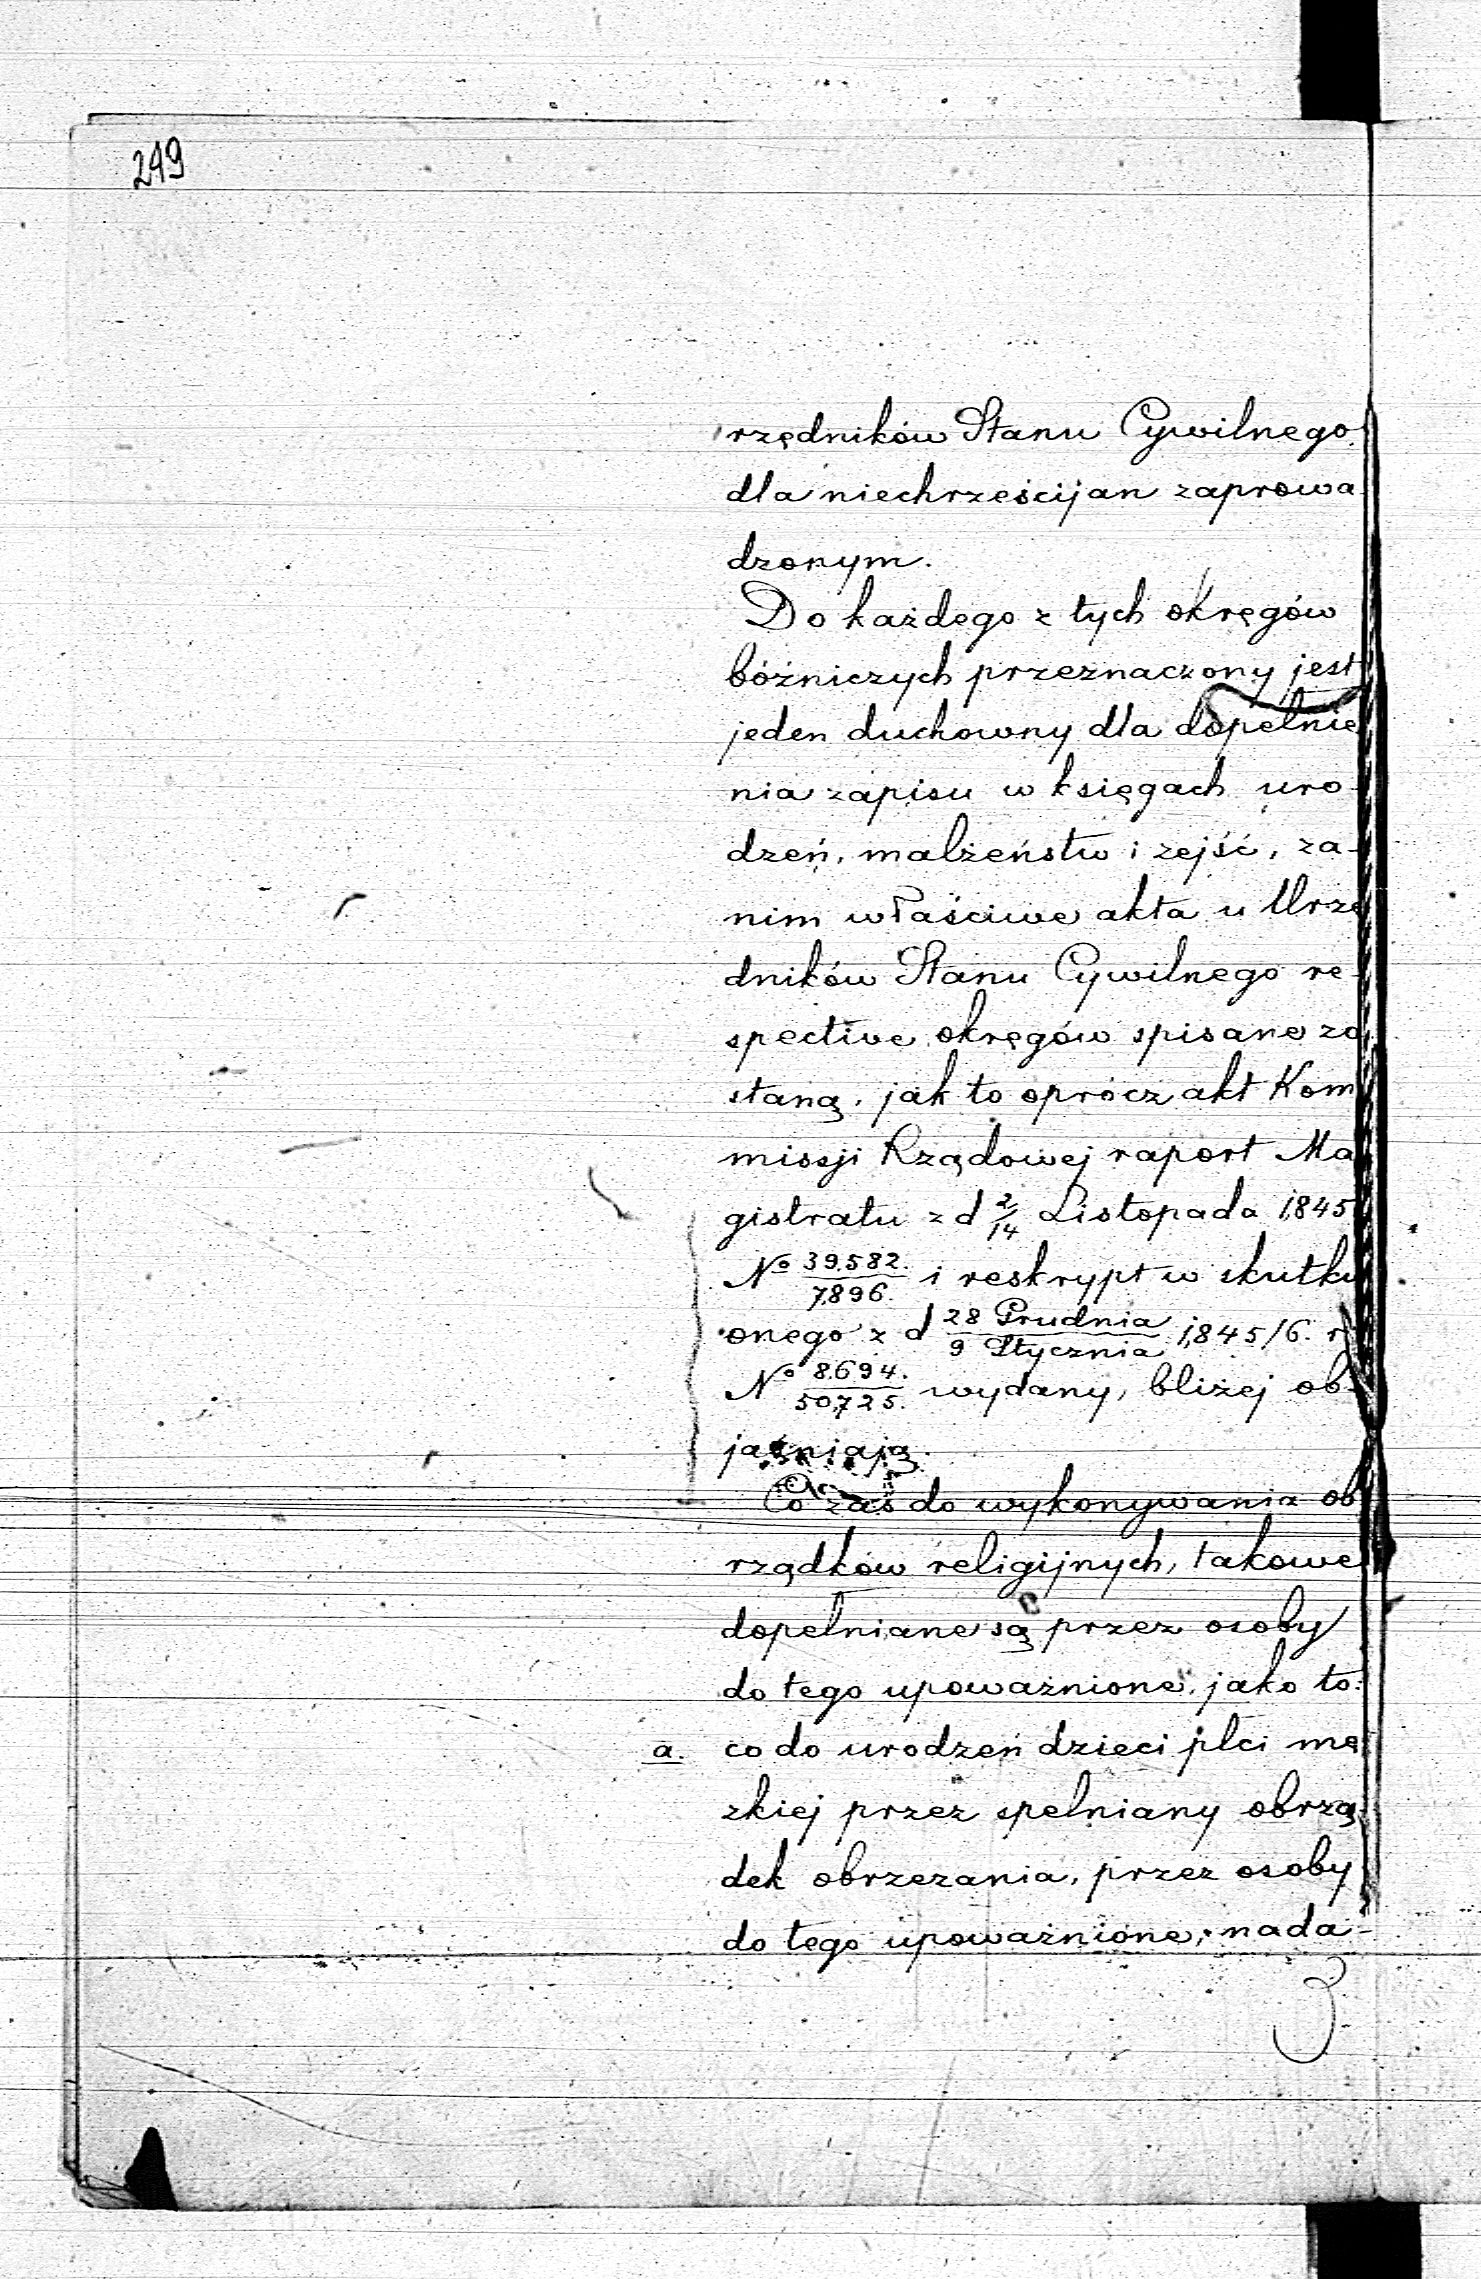 249
rzędników Stanu Cywilnego
dla niechrześcijan zaprowa
dzonym.
Do każdego z tych okręgów
bóźniczych przeznaczony jest
jeden duchowny dla dopełnie
nia zapisu w księgach uro-
dzeń, małżeństw i zejść, za-
nim właściwe akta u Urzę
dników Stanu Cywilnego re-
spective okręgów spisane zo
staną, jak to oprócz akt Kom
missji Rządowej raport Ma
gistratu z d 2/14 Listopada 1845
No 39,582./7,896. i reskrypt w skutku
onego z d 28 Grudnia/9 Stycznia 1,845/6. r
No 8.694./50,725. wydany, bliżej ob-
jaśniają.
Co zaś do wykonywania ob
rządków religijnych, takowe
dopełniane są przez osoby
do tego upoważnione, jako to:
a. co do urodzeń dzieci płci mę
zkiej przez spełniany obrzą
dek obrzezania, przez osoby
do tego upoważnione, nada-
3